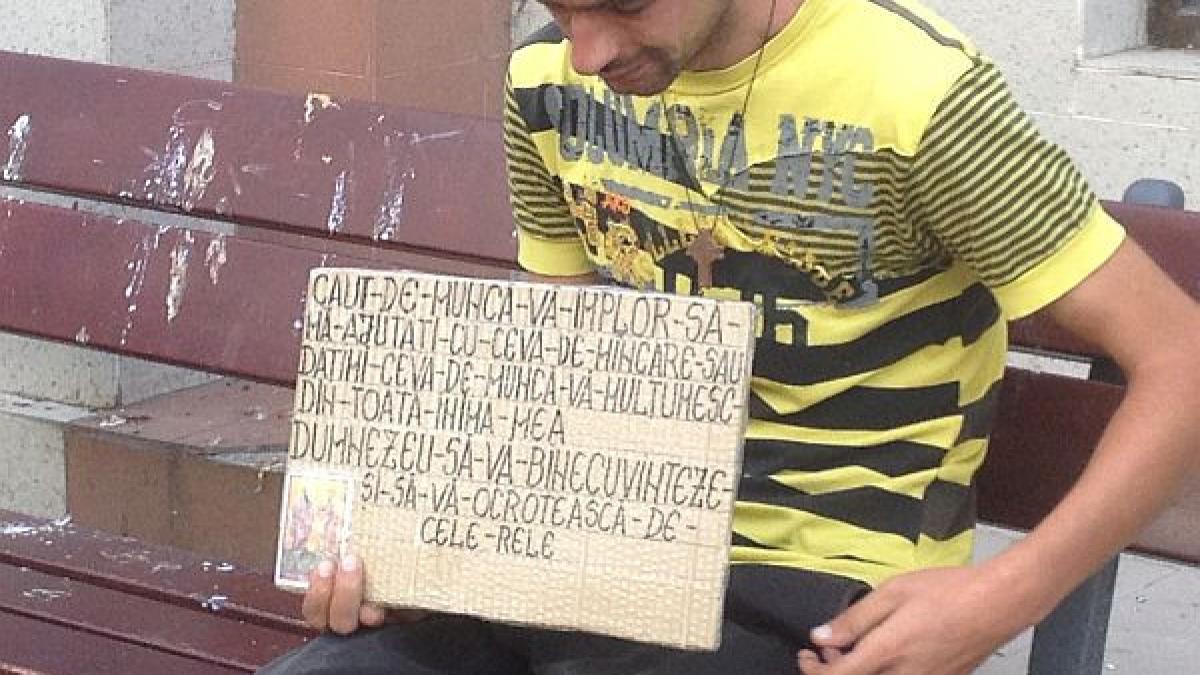 COLUMBIA NYC
CAUT-DE-MUNCA-VA-IMPLOR-SA-
MA-AJUTATI-CU-CEVA-DE-MINCARE-SAU
DATIMI-CEVA-DE-MUNCA-VA-MULTUMESC-
DIN-TOATA-INIMA-MEA
DUMNEZEU-SA-VA-BINECUVINTEZE-
SI-SA-VA-OCROTEASCA-DE-
CELE-RELE